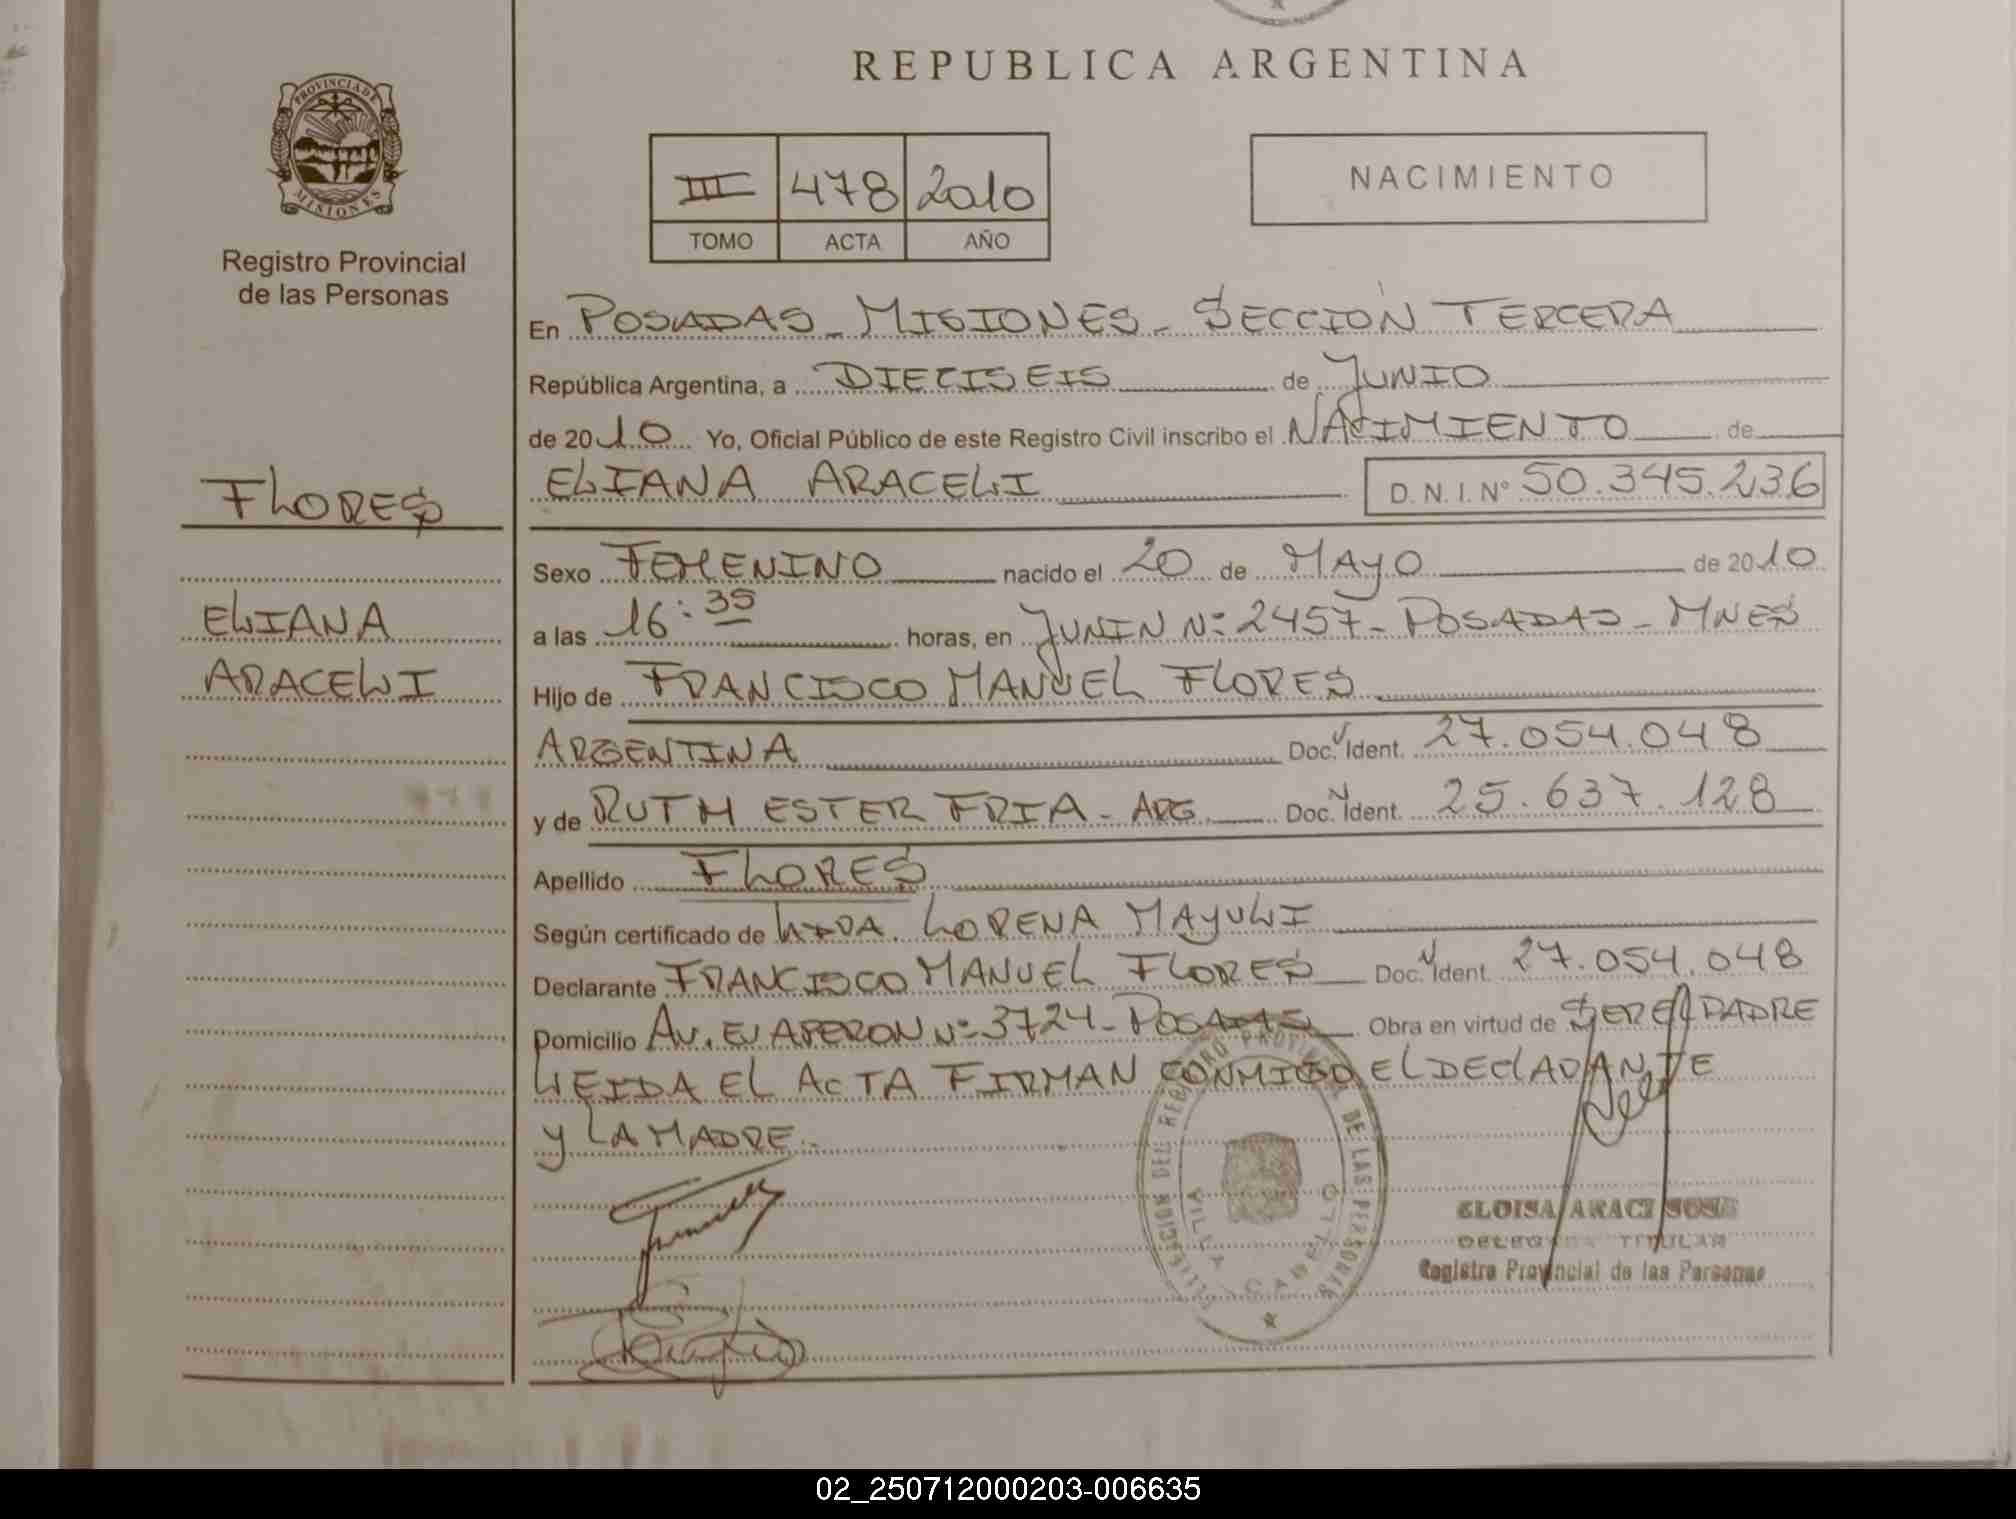 REPUBLICA ARGENTINA
PROVINCIA DE
MISIONES
Registro Provincial
de las Personas
III 478 2010
TOMO ACTA AÑO
NACIMIENTO
En POSADAS - MISIONES - SECCIÓN TERCERA
República Argentina, a DIECISEIS de JUNIO
de 2010 Yo, Oficial Público de este Registro Civil inscribo el NACIMIENTO de
ELIANA ARACELI D.N.I. Nº 50.345.236
FLORES
ELIANA
ARACELI
Sexo FEMENINO nacido el 20 de MAYO de 2010
a las 16:35 horas, en JUNIN Nº 2457 - POSADAS - MNES
Hijo de FRANCISCO MANUEL FLORES
ARGENTINA Doc. Ident. 27.054.048
y de RUTH ESTER FRIA - ARG. Doc. Ident. 25.637.128
Apellido FLORES
Según certificado de LIDA. LORENA MAYULI
Declarante FRANCISCO MANUEL FLORES Doc. Ident. 27.054.048
Domicilio AV. EVA PERON Nº 3724 - POSADAS Obra en virtud de SER EL PADRE
LEIDA EL ACTA FIRMAN CONMIGO EL DECLARANTE
Y LA MADRE.-
DELEGACION DEL REGISTRO PROVINCIAL DE LAS PERSONAS
VILLA CABELLO
ELOISA ARACI SOSA
DELEGADA TITULAR
Registro Provincial de las Personas
02_250712000203-006635